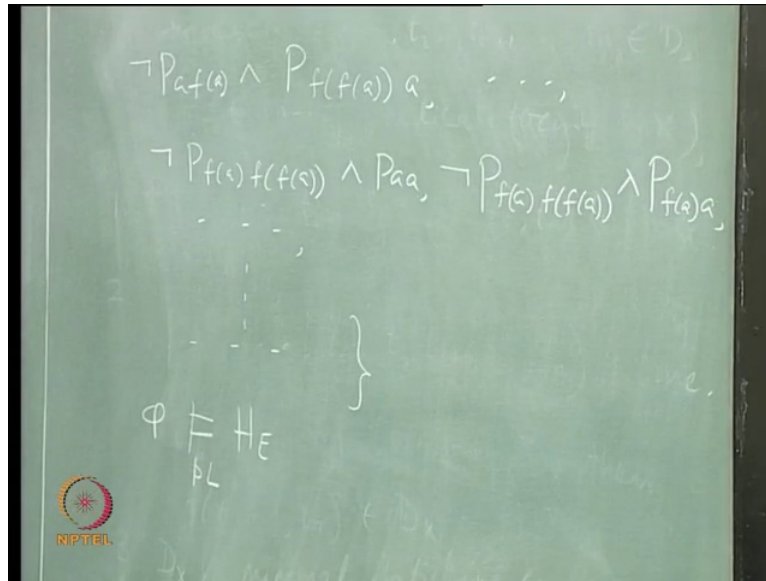 ¬P_{a f(a)} ∧ P_{f(f(a)) a}, - - -,
¬P_{f(a) f(f(a))} ∧ Paa, ¬P_{f(a) f(f(a))} ∧ P_{f(a) a},
- - -,
- - - }
φ ⊨_{PL} H_E
NPTEL